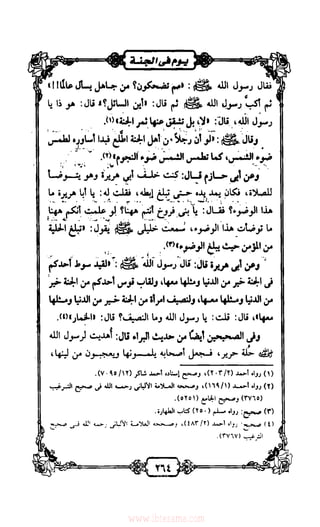 يوم في الجنة
فقال رسول الله ﷺ : «مم تضحكون؟ من جاهل يسأل عالمًا!!»
ثم أكبَّ رسول الله ﷺ ثم قال: «أين السائل؟» قال: هو ذا يا
رسول الله، قال: «لا، بل تشقق عن ثمر الجنة»(١).
وقال ﷺ: «لو أن رجلاً من أهل الجنة اطَّلع فبدا أساوره لطمس
ضوء الشمس، كما تطمس الشمس ضوء النجوم»(٢).
وعن أبي حازم قال: كنت خلف أبي هريرة وهو يتوضأ
للصلاة، فكان يمد يده حتى تبلغ إبطه، فقلت له: يا أبا هريرة ما
هذا الوضوء؟ فقال: يا بني فروخ أنتم ههنا؟ لو علمت أنكم ههنا
ما توضأت هذا الوضوء، سمعت خليلي ﷺ يقول: «تبلغ الحلية
من المؤمن حيث يبلغ الوضوء»(٣).
وعن أبي هريرة قال: قال رسول الله ﷺ : «لقيد سوط أحدكم
في الجنة خير من الدنيا ومثلها معها، ولقاب قوس أحدكم من الجنة خير
من الدنيا ومثلها معها، ولنصيف امرأة من الجنة خير من الدنيا ومثلها
معها»، قال: قلت: يا رسول الله وما النصيف؟ قال: «الخمار»(٤).
وفي الصحيحين أيضًا من حديث البراء قال: أهديت لرسول الله
ﷺ حلة حرير، فجعل أصحابه يلمسونها ويعجبون من لينها،
(١) رواه أحمد (٢/٢٠٣)، وصحح إسناده أحمد شاكر (١٢/٧٠٩٥).
(٢) رواه أحمد (١/١٦٩)، وصححه العلامة الألباني رحمه الله في صحيح الترغيب
(٣٧٦٥) وصحيح الجامع (٥٢٥١).
(٣) صحيح: رواه مسلم (٢٥٠) كتاب الطهارة.
(٤) صحيح: رواه أحمد (٢/٤٨٣)، وصححه العلامة الألباني رحمه الله في صحيح
الترغيب (٣٧٦٧).
٢٦٤
www.ibtesama.com